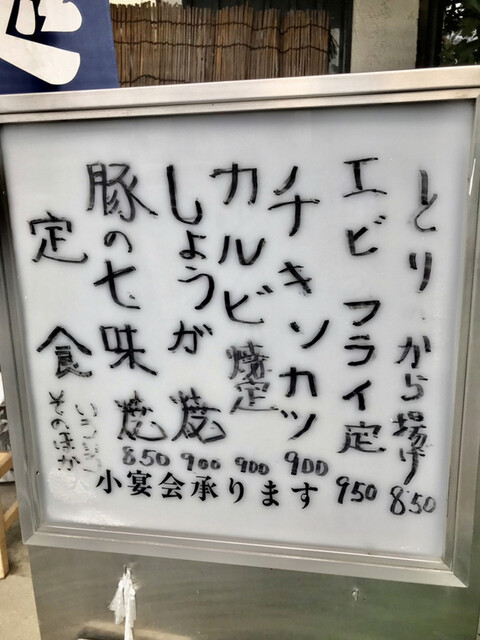 とりから揚げ 850
エビフライ定 950
チキンカツ 900
カルビ焼定 900
しょうが焼 900
豚の七味焼 850
定食
そのほか
小宴会承ります